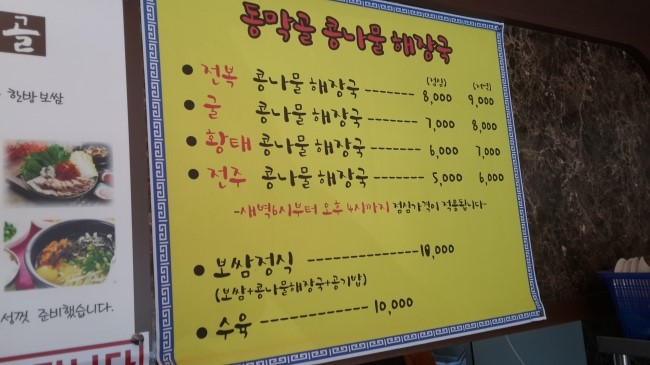 골
한방 보쌈
성껏 준비했습니다.
통막골 콩나물 해장국
(점심) (저녁)
• 전복 콩나물 해장국 -------- 8,000 9,000
• 굴 콩나물 해장국 -------- 7,000 8,000
• 황태 콩나물 해장국 -------- 6,000 7,000
• 전주 콩나물 해장국 -------- 5,000 6,000
-새벽6시부터 오후 4시까지 점심가격이 적용됩니다-
• 보쌈정식 --------------- 18,000
(보쌈+콩나물해장국+공기밥)
• 수육 --------------- 10,000